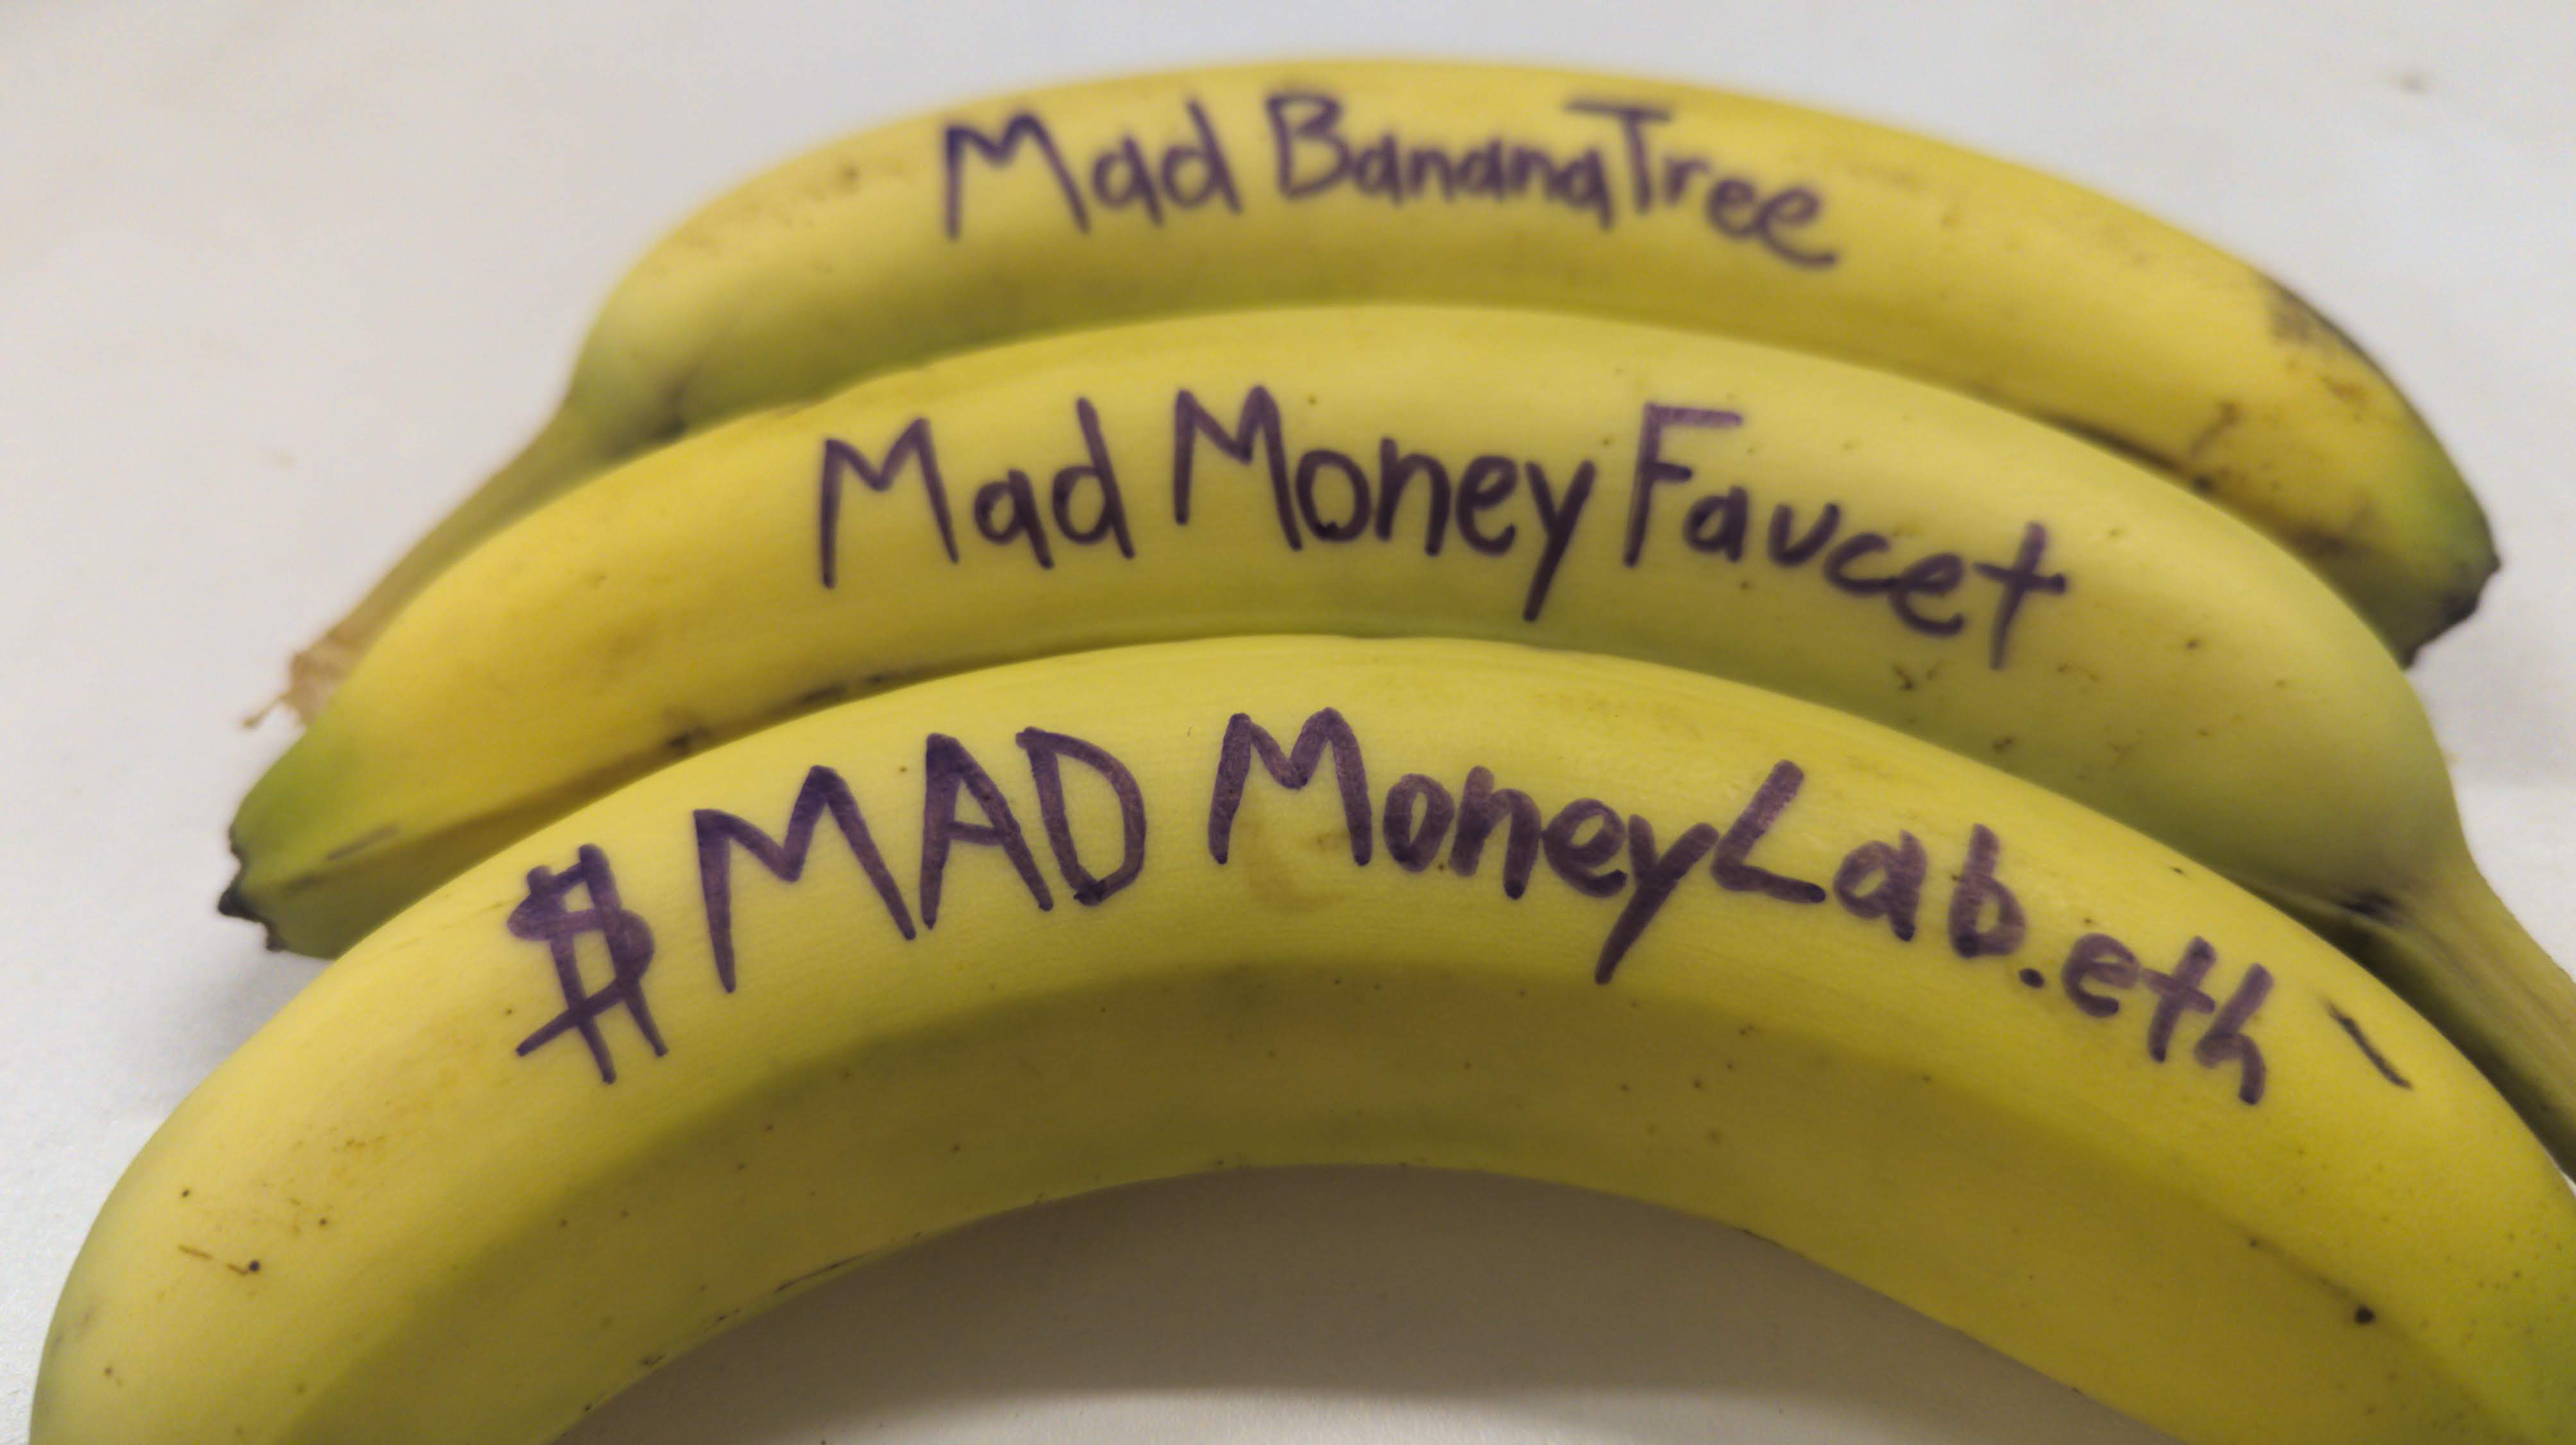 Mad BananaTree
Mad Money Faucet
$MAD MoneyLab.eth